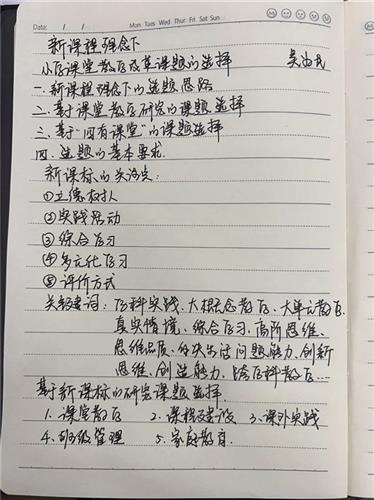 Date: / /
Mon Tues Wed Thur Fri Sat Sun
新课程理念下
小学课堂教学改革课题的选择
一.新课程理念下的选题思路
二.基于课堂教学研究的课题选择
三.基于“四有课堂”的课题选择
四.选题的基本要求
新课标的关注点:
①立德树人
②实践活动
③综合学习
④多元化学习
⑤评价方式
关键词:学科实践、大概念教学、大单元教学、
真实情境、综合学习、高阶思维、
思维品质、解决生活问题能力、创新
思维、创造能力、跨学科教学…
基于新课标的研究课题选择
1.课堂教学 2.课程建设 3.课外实践
4.班级管理 5.家庭教育.